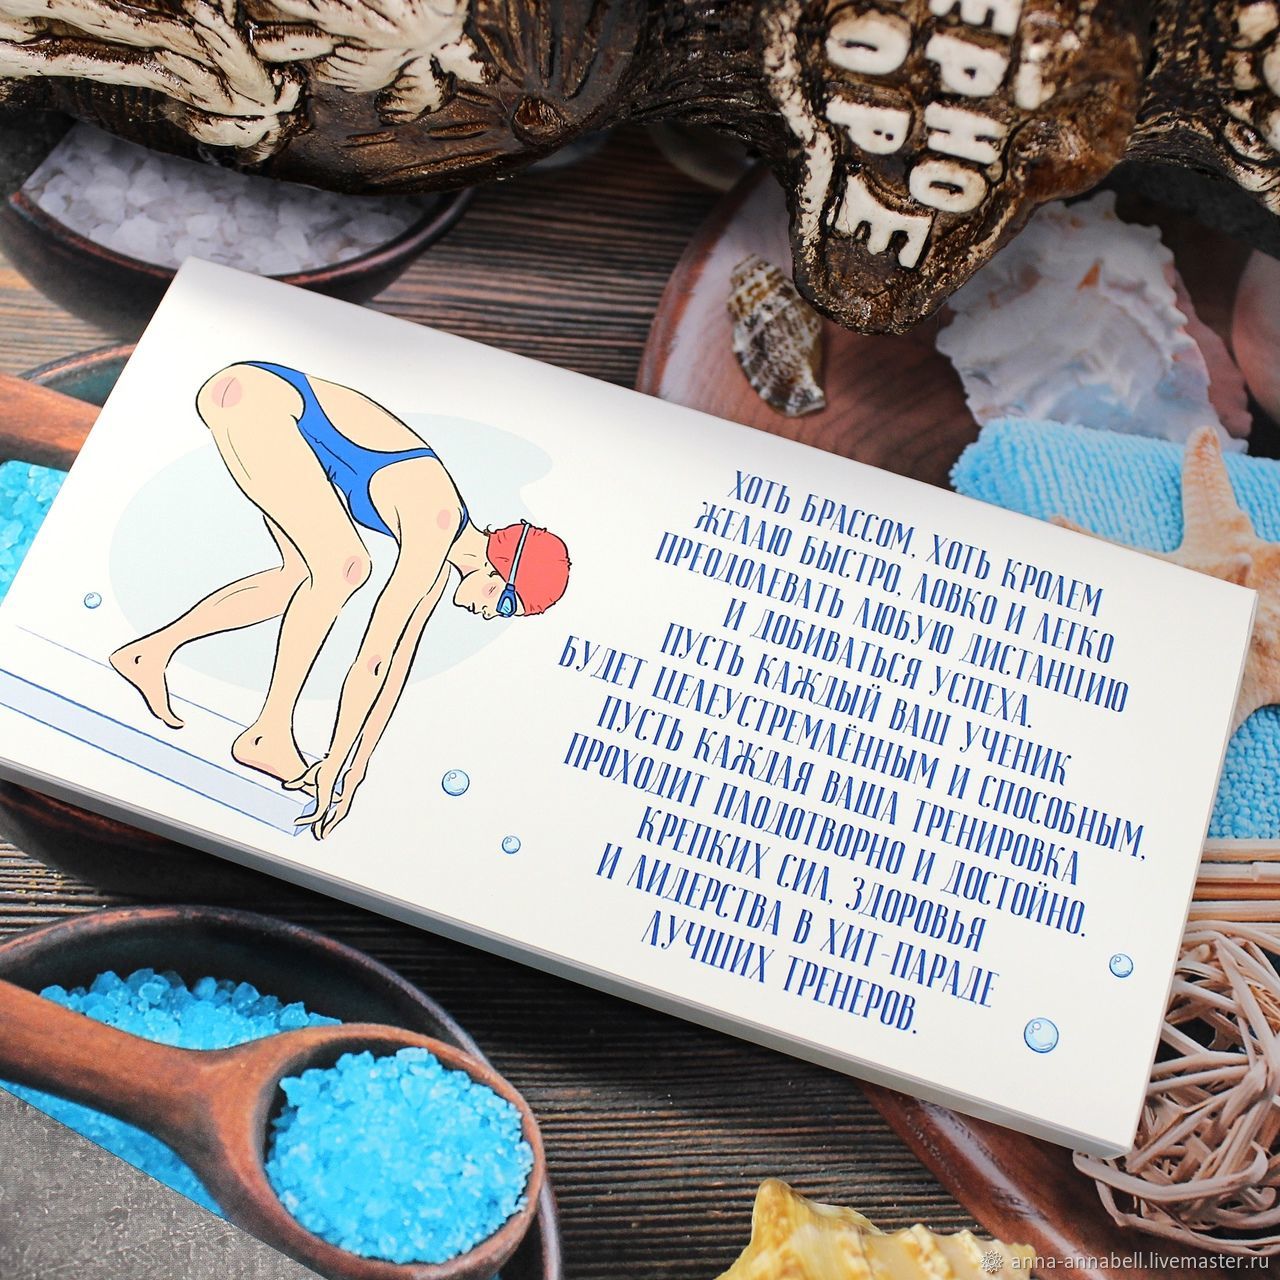 ЕРНО
ОРЕ
ХОТЬ БРАССОМ, ХОТЬ КРОЛЕМ
ЖЕЛАЮ БЫСТРО, ЛОВКО И ЛЕГКО
ПРЕОДОЛЕВАТЬ ЛЮБУЮ ДИСТАНЦИЮ
И ДОБИВАТЬСЯ УСПЕХА.
ПУСТЬ КАЖДЫЙ ВАШ УЧЕНИК
БУДЕТ ЦЕЛЕУСТРЕМЛЁННЫМ И СПОСОБНЫМ,
ПУСТЬ КАЖДАЯ ВАША ТРЕНИРОВКА
ПРОХОДИТ ПЛОДОТВОРНО И ДОСТОЙНО.
КРЕПКИХ СИЛ, ЗДОРОВЬЯ
И ЛИДЕРСТВА В ХИТ-ПАРАДЕ
ЛУЧШИХ ТРЕНЕРОВ.
anna-annabell.livemaster.ru